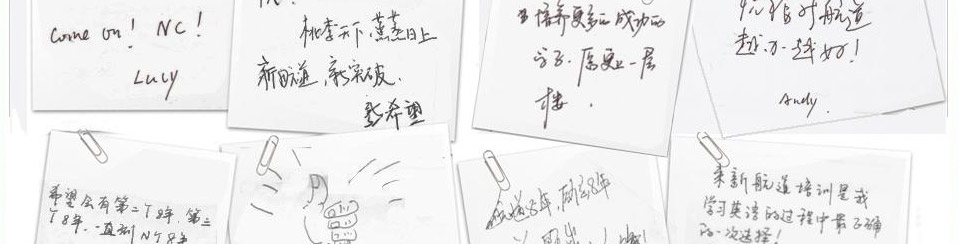 Come on! NC!
Lucy
桃李天下，蒸蒸日上
新航道，新突破。
张希望
培养更多的成功的
学子，愿更上一层
楼。
航道
越办越好！
Andy.
希望会有第二个8年，第三
个8年，一直到N个8年
航道8年，励志8年
来新航道培训是我
学习英语的过程中最正确
的一次选择！